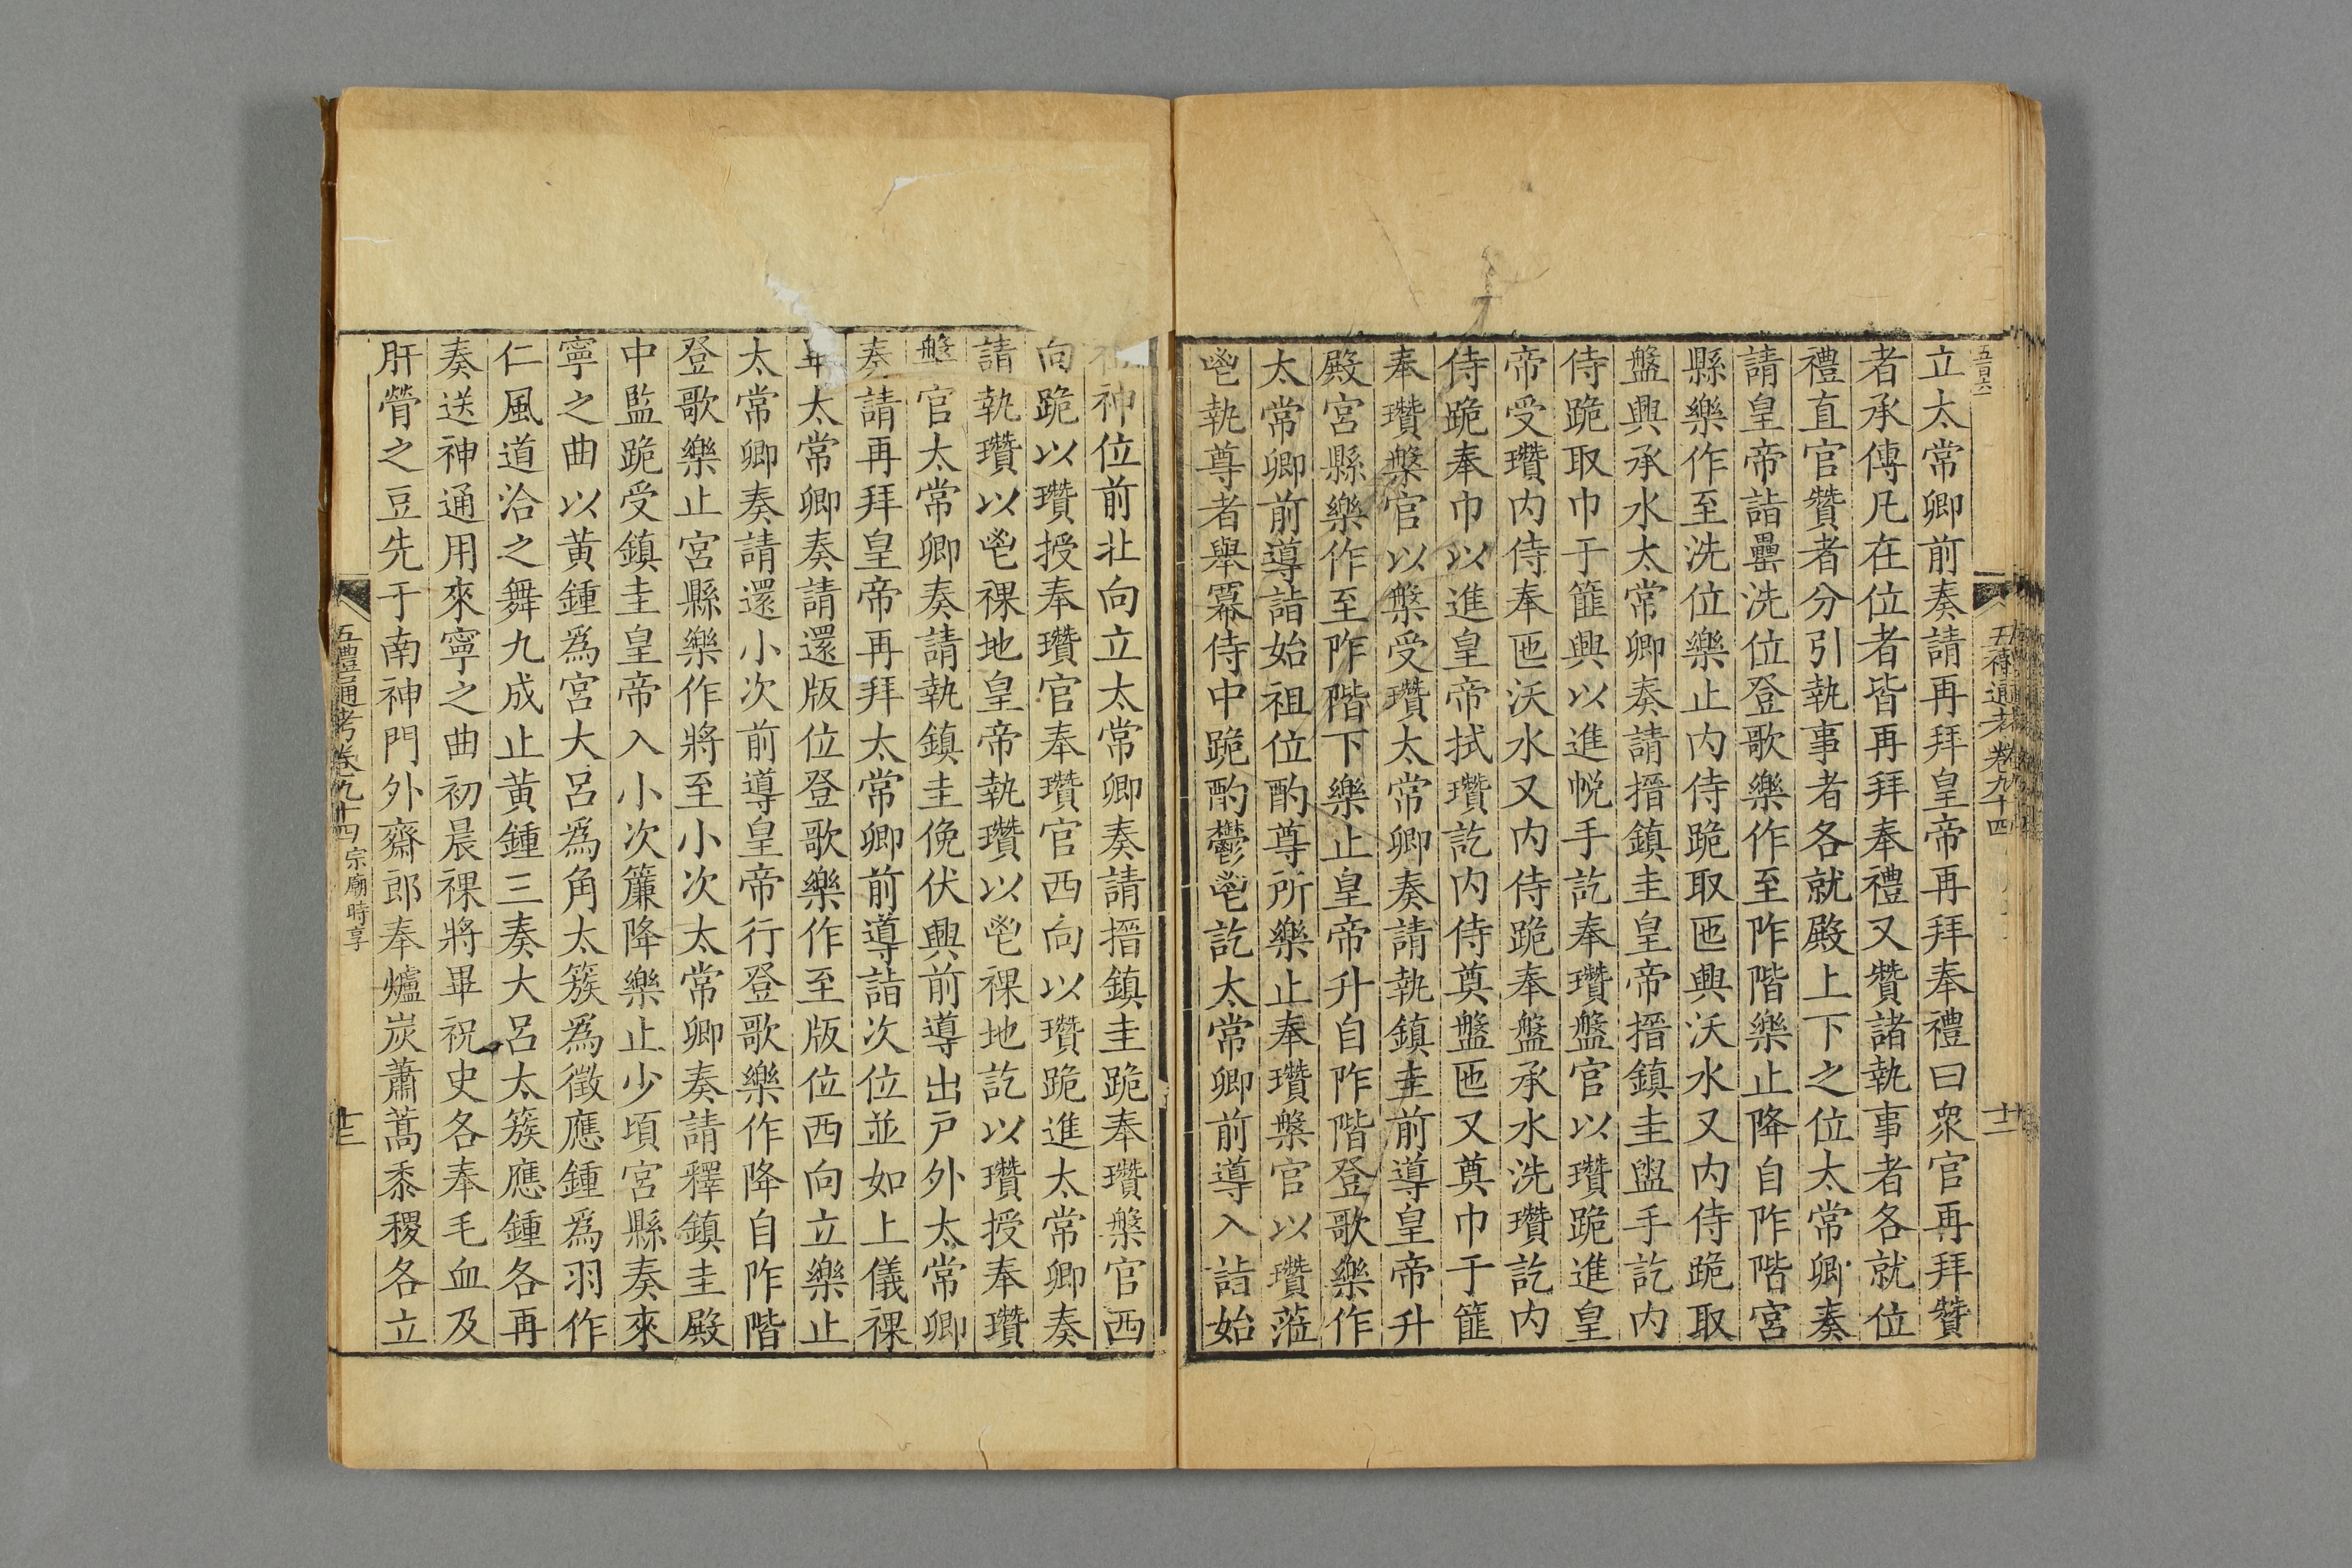 五百六
五禮通考卷九十四
十二
立太常卿前奏請再拜皇帝再拜奉禮曰衆官再拜贊
者承傳凡在位者皆再拜奉禮又贊諸執事者各就位
禮直官贊者分引執事者各就殿上下之位太常卿奏
請皇帝詣罍洗位登歌樂作至阼階樂止降自阼階宮
縣樂作至洗位樂止内侍跪取匜興沃水又内侍跪取
盤興承水太常卿奏請搢鎮圭皇帝搢鎮圭盥手訖内
侍跪取巾于篚興以進帨手訖奉瓚盤官以瓚跪進皇
帝受瓚内侍奉匜沃水又内侍跪奉盤承水洗瓚訖内
侍跪奉巾以進皇帝拭瓚訖内侍奠盤匜又奠巾于篚
奉瓚槃官以槃受瓚太常卿奏請執鎮圭前導皇帝升
殿宮縣樂作至阼階下樂止皇帝升自阼階登歌樂作
太常卿前導詣始祖位酌尊所樂止奉瓚槃官以瓚蒞
鬯執尊者舉冪侍中跪酌鬱鬯訖太常卿前導入詣始
神位前北向立太常卿奏請搢鎮圭跪奉瓚槃官西
向跪以瓚授奉瓚官奉瓚官西向以瓚跪進太常卿奏
請執瓚以鬯祼地皇帝執瓚以鬯祼地訖以瓚授奉瓚
盤官太常卿奏請執鎮圭俛伏興前導出戶外太常卿
奏請再拜皇帝再拜太常卿前導詣次位並如上儀祼
畢太常卿奏請還版位登歌樂作至版位西向立樂止
太常卿奏請還小次前導皇帝行登歌樂作降自阼階
登歌樂止宮縣樂作將至小次太常卿奏請釋鎮圭殿
中監跪受鎮圭皇帝入小次簾降樂止少頃宮縣奏來
寧之曲以黃鍾爲宮大呂爲角太簇爲徵應鍾爲羽作
仁風道洽之舞九成止黃鍾三奏大呂太簇應鍾各再
奏送神通用來寧之曲初晨祼將畢祝史各奉毛血及
肝膋之豆先于南神門外齋郎奉爐炭蕭蒿黍稷各立
五禮通考卷九十四宗廟時享
十三